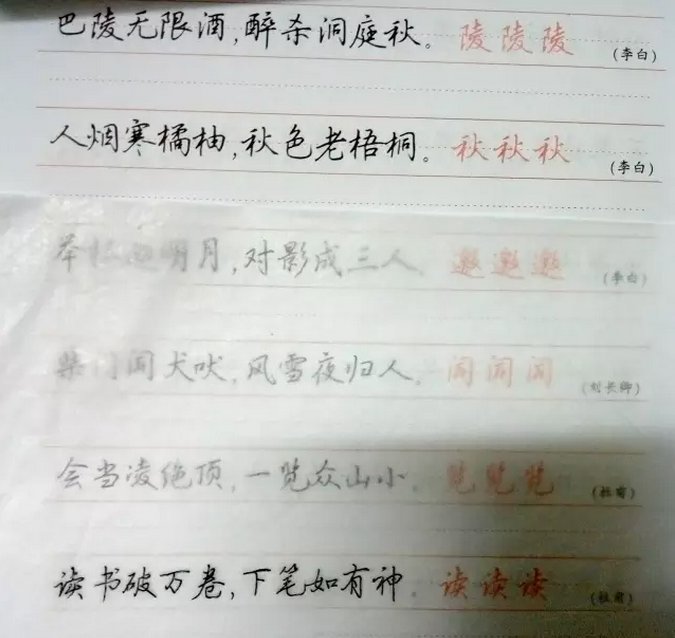 巴陵无限酒，醉杀洞庭秋。陵陵陵（李白）
人烟寒橘柚，秋色老梧桐。秋秋秋（李白）
举杯邀明月，对影成三人。邀邀邀（李白）
柴门闻犬吠，风雪夜归人。闻闻闻（刘长卿）
会当凌绝顶，一览众山小。览览览（杜甫）
读书破万卷，下笔如有神。读读读（杜甫）